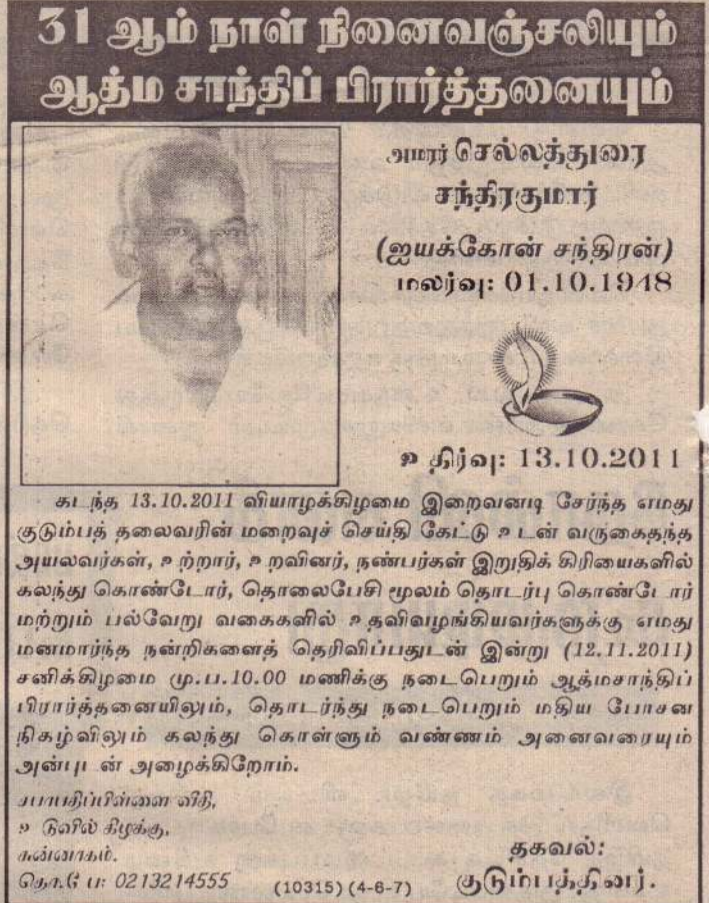 31 ஆம் நாள் நினைவஞ்சலியும்
ஆத்ம சாந்திப் பிரார்த்தனையும்
அமரர் செல்லத்துரை
சந்திரகுமார்
(ஐயக்கோன் சந்திரன்)
மலர்வு: 01.10.1948
உதிர்வு: 13.10.2011
கடந்த 13.10.2011 வியாழக்கிழமை இறைவனடி சேர்ந்த எமது
குடும்பத் தலைவரின் மறைவுச் செய்தி கேட்டு உடன் வருகைதந்த
அயலவர்கள், உற்றார், உறவினர், நண்பர்கள் இறுதிக் கிரியைகளில்
கலந்து கொண்டோர், தொலைபேசி மூலம் தொடர்பு கொண்டோர்
மற்றும் பல்வேறு வகைகளில் உதவிவழங்கியவர்களுக்கு எமது
மனமார்ந்த நன்றிகளைத் தெரிவிப்பதுடன் இன்று (12.11.2011)
சனிக்கிழமை மு.ப.10.00 மணிக்கு நடைபெறும் ஆத்மசாந்திப்
பிரார்த்தனையிலும், தொடர்ந்து நடைபெறும் மதிய போசன
நிகழ்விலும் கலந்து கொள்ளும் வண்ணம் அனைவரையும்
அன்புடன் அழைக்கிறோம்.
சபாபதிப்பிள்ளை வீதி,
உடுவில் கிழக்கு,
சுன்னாகம்.
தொ.பே: 0213214555
(10315) (4-6-7)
தகவல்:
குடும்பத்தினர்.